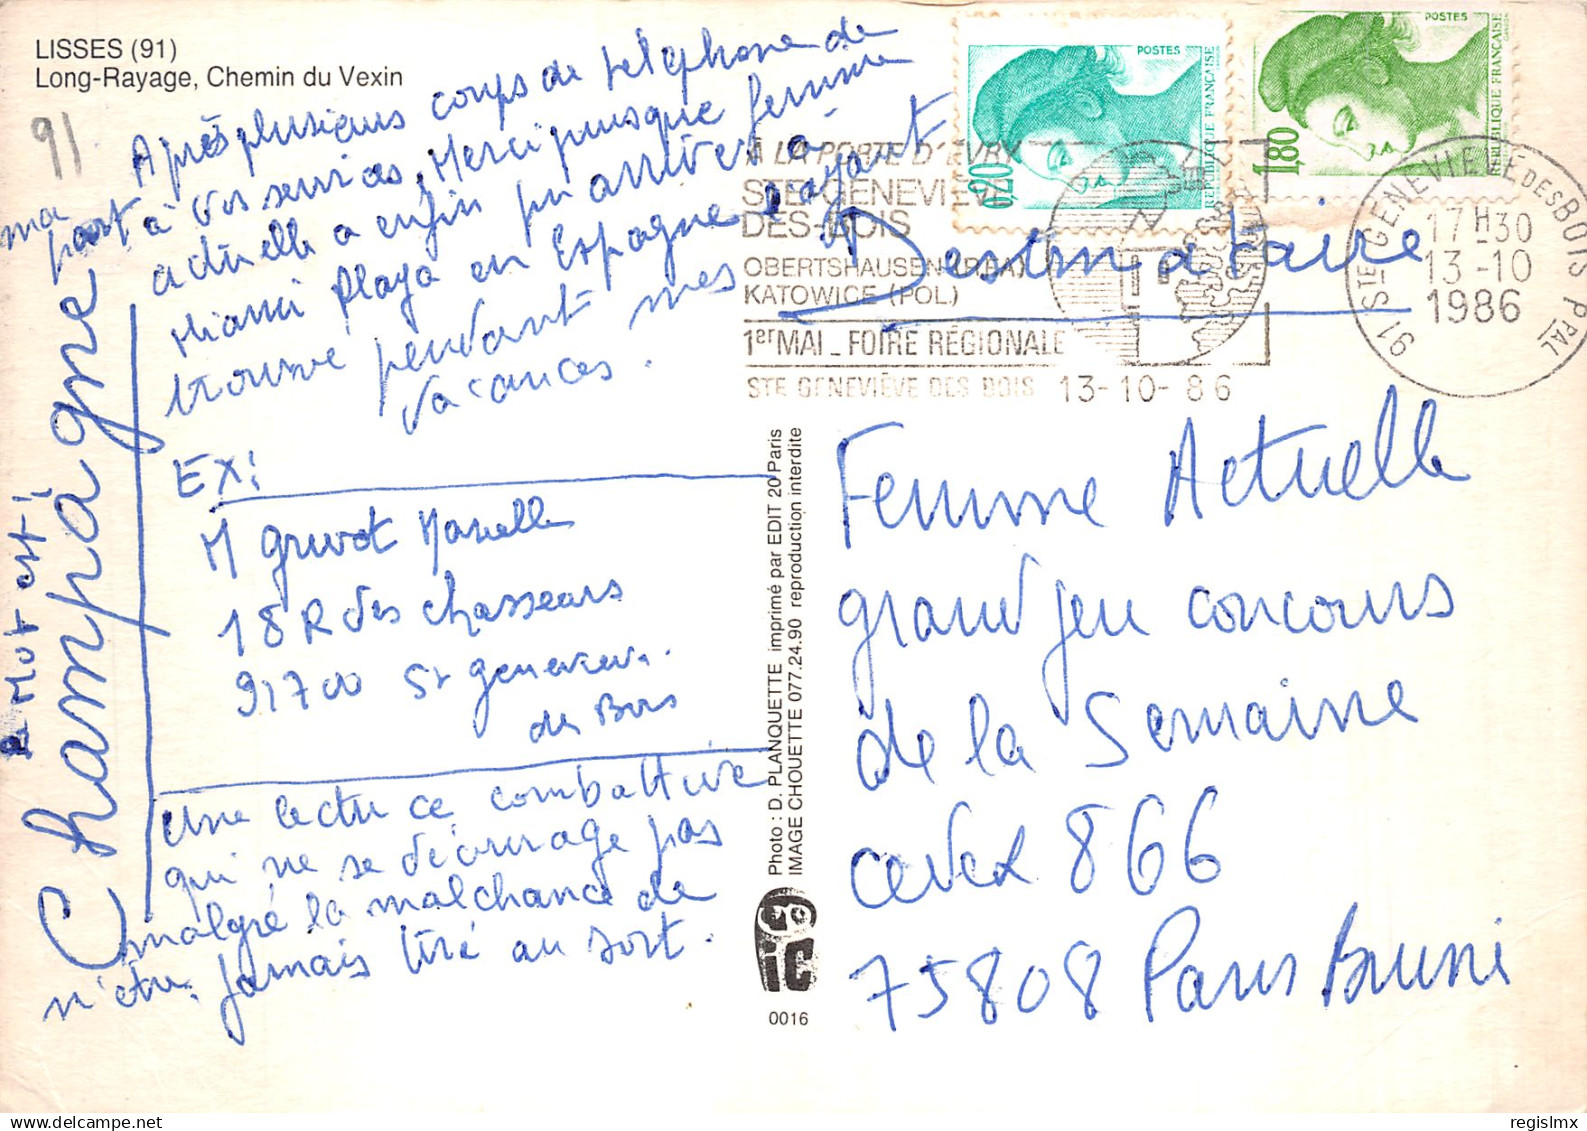 LISSES (91)
Long-Rayage, Chemin du Vexin
91
Après plusieurs coups de téléphone de
ma part à vos services. Merci puisque femme
actuelle a enfin pu arriver à
Miami Playa en Espagne
trouve pendant mes
vacances.
EX:
M Marielle
18 R des chasseurs
91700 St genevieve.
des Bois
une lectu ce combattive
qui ne se décourage pas
malgré la malchance de
n'etre jamais tiré au sort.
Mot est!
Champagne
POSTES
RÉPUBLIQUE FRANÇAISE
0,20
POSTES
RÉPUBLIQUE FRANÇAISE
1,80
A LA PORTE D'EVRY
STE GENEVIEVE
DES-BOIS
OBERTSHAUSEN (R.F.A.)
KATOWICE (POL.)
1er MAI _ FOIRE RÉGIONALE
STE GENEVIÈVE DES BOIS 13-10-86
91 STE GENEVIEVE DES BOIS PPAL
17H30
13-10
1986
Destinataire
Femme Actuelle
grand jeu concours
de la Semaine
cedex 866
75808 Paris Brune
Photo : D. PLANQUETTE imprimé par EDIT 20 Paris
IMAGE CHOUETTE 077.24.90 reproduction interdite
iC
0016
regislmx